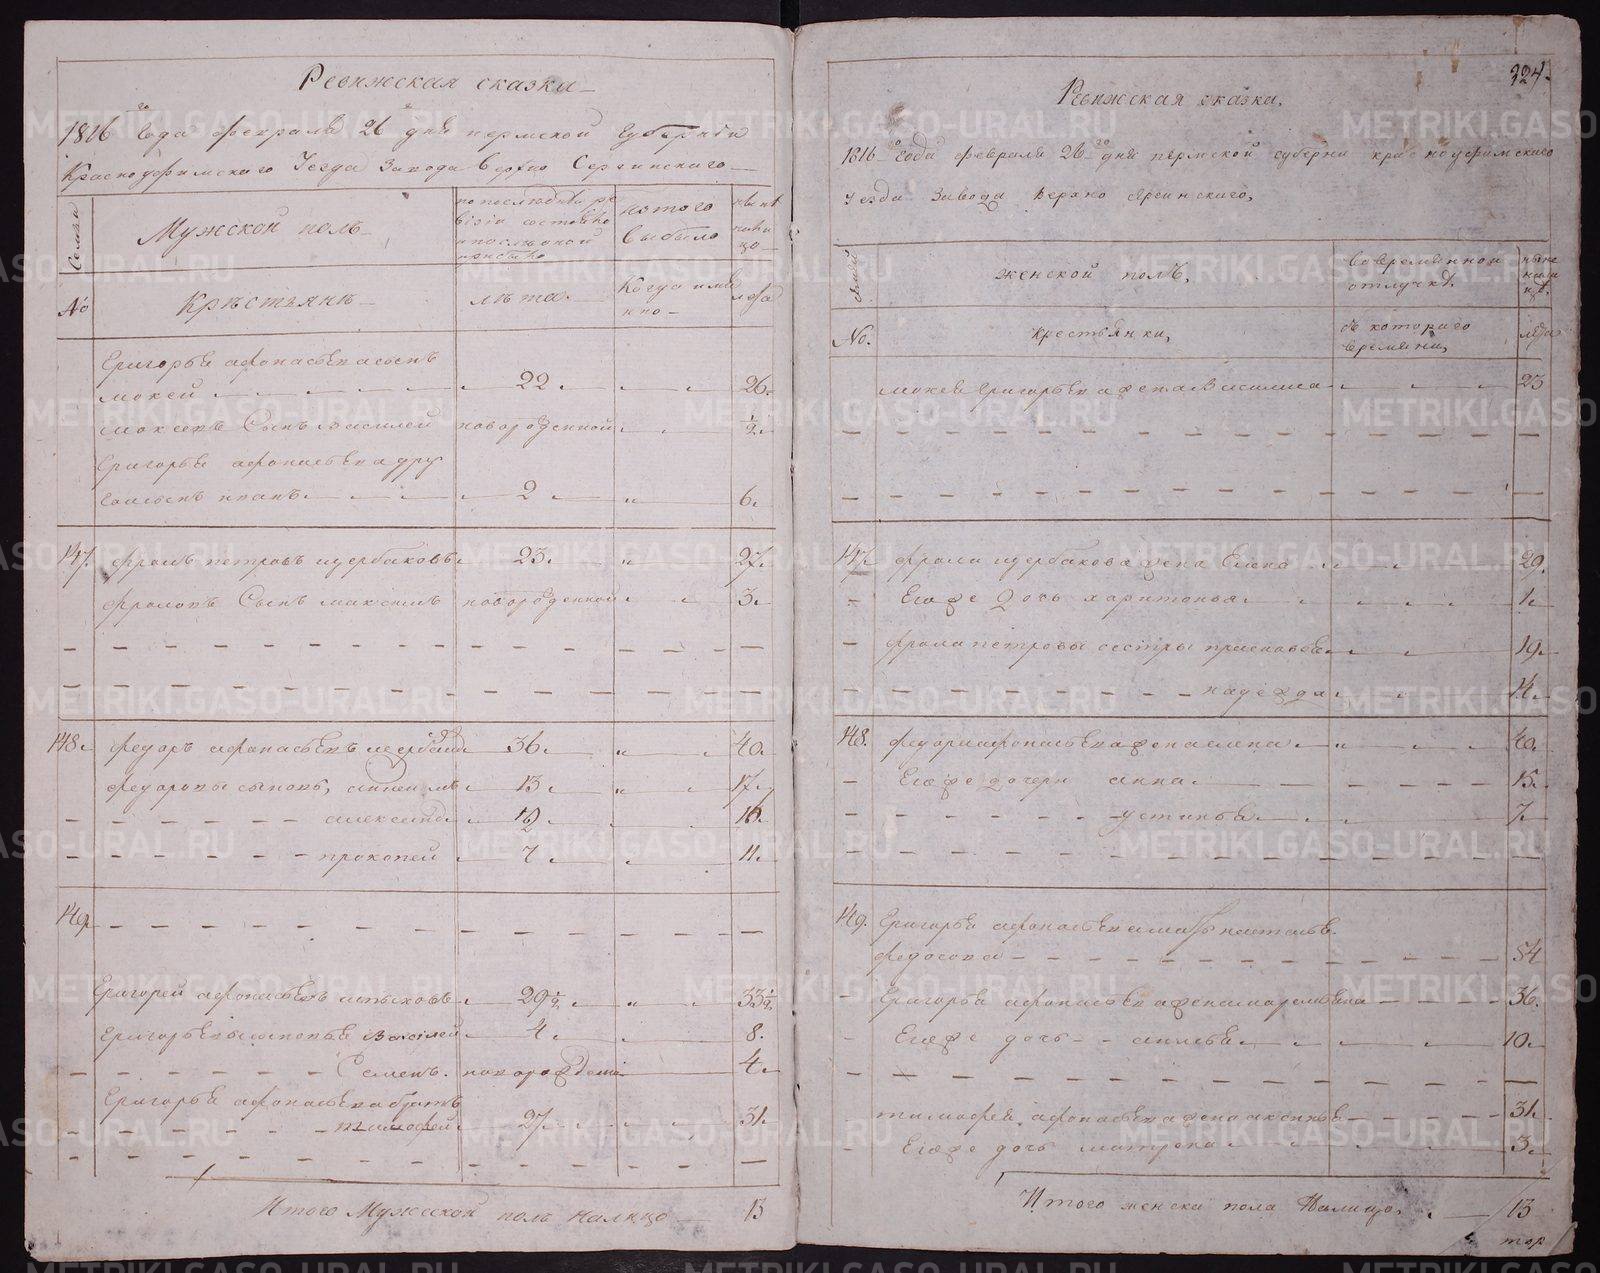 Ревижская сказка
1816 го Года февраля 26 дня пермской Губернии
Красноуфимскаго Уезда Завода Верхно Сергинскаго
Семьи
Мужской полъ
по последней ре
визіи состояло
и после оной
прибыло
изъ того
выбыло
ныне
нали
цо
№
Крѣстьянѣ
лѣта
Когда имя
нно
лета
Григорья афонасьева сынъ
мокей 22 26
мокеевъ Сынъ василей новорожденной ½
Григорья афонасьева дру
гой сынъ иванъ 2 6
147. фролъ петровъ щербаковъ 23 27
фроловъ Сынъ максимъ новорожденной 3
148 федоръ афонасьевъ щербаковъ 36 40
федоровы сыновья, 13 17
александръ 12 16
прокопей 7 11
149
Григорей афонасьевъ 29½ 33½
Григорьевы сыновья василей 4 8
Семенъ новорожденной 4
Григорья афонасьева братъ
тимофей 27 31
Итого Мужеской полъ налицо 13
324.
Ревижская сказка,
1816 Года февраля 26 го дня пермской губерни красноуфимскаго
уезда Завода Верхно Сергинскаго,
Семьи
женской полъ,
во временной
отлучкѣ.
ныне
нали
цѣ.
No.
крестьянки,
съ котораго
времяни,
лета
мокея Григорьева жена Василиса 23
147 фрола щербакова жена Елена 29.
Ея же дочь харитонья 1.
фрола петрова сестры прасковья 19.
надежда 14
148. федора афонасьева жена елена 40.
Ея же дочери анна 15.
устинья 7
149. Григорья афонасьева мать наталья
федосова 54
Григорья афонасьева жена маремьяна 36.
Ея же дочь 10.
тимофея афонасьева жена аксинья 31.
Ея же дочь матрена 3.
Итого женска пола Налицо, 13